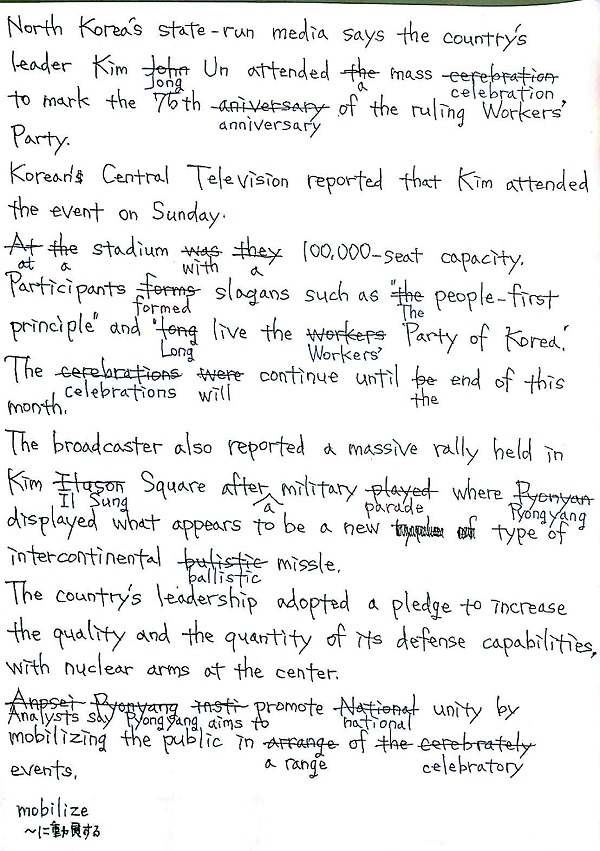 North Korea's state-run media says the country's
leader Kim John Un attended the mass cerebration
Jong a celebration
to mark the 76th aniversary of the ruling Workers'
anniversary
Party.
Korean's Central Television reported that Kim attended
the event on Sunday.
At the stadium was they 100,000-seat capacity.
at a with a
Participants forms slagans such as "the people-first
formed The
principle" and "long live the workers Party of Korea."
Long Workers'
The cerebrations were continue until be end of this
celebrations will the
month.
The broadcaster also reported a massive rally held in
Kim Iluson Square after military played where Pyonyan
Il Sung a parade Pyongyang
displayed what appears to be a new type of
intercontinental bulistic missle.
ballistic
The country's leadership adopted a pledge to increase
the quality and the quantity of its defense capabilities,
with nuclear arms at the center.
Anpsei Pyonyang insti promote National unity by
Analysts say Pyongyang aims to national
mobilizing the public in arrange of the cerebrately
a range celebratory
events.
mobilize
〜に動員する